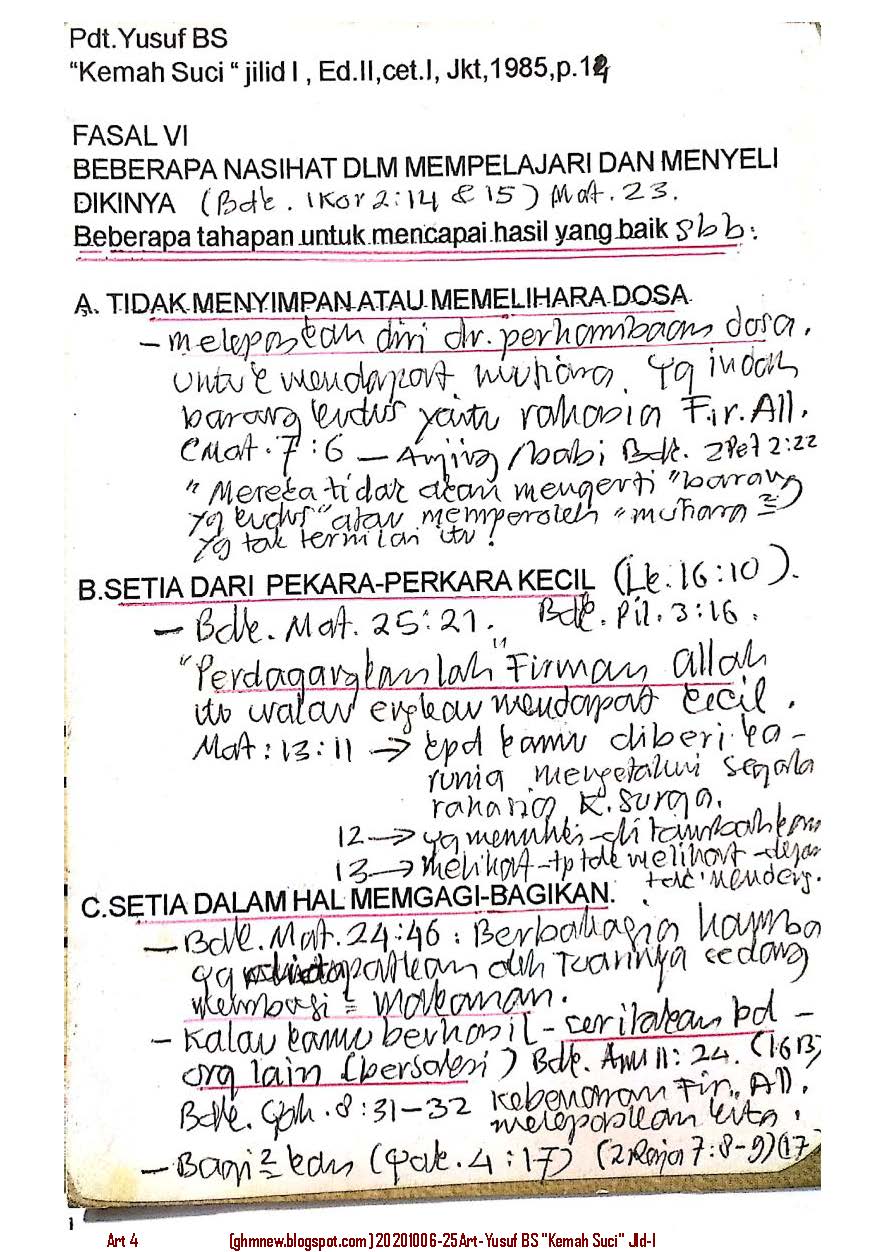 Pdt.Yusuf BS
“Kemah Suci “ jilid I , Ed.II,cet.I, Jkt,1985,p.
FASAL VI
BEBERAPA NASIHAT DLM MEMPELAJARI DAN MENYELI
DIKINYA (Bdk. 1Kor 2:14 & 15) Mat. 23.
Beberapa tahapan untuk mencapai hasil yang baik sbb:
A. TIDAK MENYIMPAN ATAU MEMELIHARA DOSA
– melepaskan diri dr. perhambaan dosa.
untuk mendapat mutiara yg indah
barang kudus yaitu rahasia Fir. All.
(Mat. 7:6 – Anjing/babi Bdk. 2Pet 2:22
"Mereka tidak akan mengerti "barang
yg kudus" atau memperoleh "mutiara²
yg tak ternilai itu!
B.SETIA DARI PEKARA-PERKARA KECIL (Lk. 16:10).
– Bdk. Mat. 25:21. Bdk. Pil. 3:16.
"Perdagangkanlah" Firman Allah
itu walau engkau mendapat kecil.
Mat: 13:11 → kpd kamu diberi ka-
runia mengetahui segala
rahasia K. Surga.
12 → yg di tambahkan
13 → melihat – tp tak melihat – dengar
tak mendeng.
C.SETIA DALAM HAL MEMGAGI-BAGIKAN.
– Bdk. Mat. 24:46 : Berbahagia hamba
yg oleh Tuannya sedang
membagi² makanan.
– Kalau kamu berhasil – ceritakan pd
org lain (bersaksi) Bdk. Ams 11:24. (16B)
Bdk. Yoh. 8:31–32 Kebenaran Fir. All.
melepaskan kita.
– Bagi²kan (Yak. 4:17) (2Raja 7:8-9) (17
1
Art 4 (ghmnew.blogspot.com)20201006-25Art-Yusuf BS "Kemah Suci" Jld-I